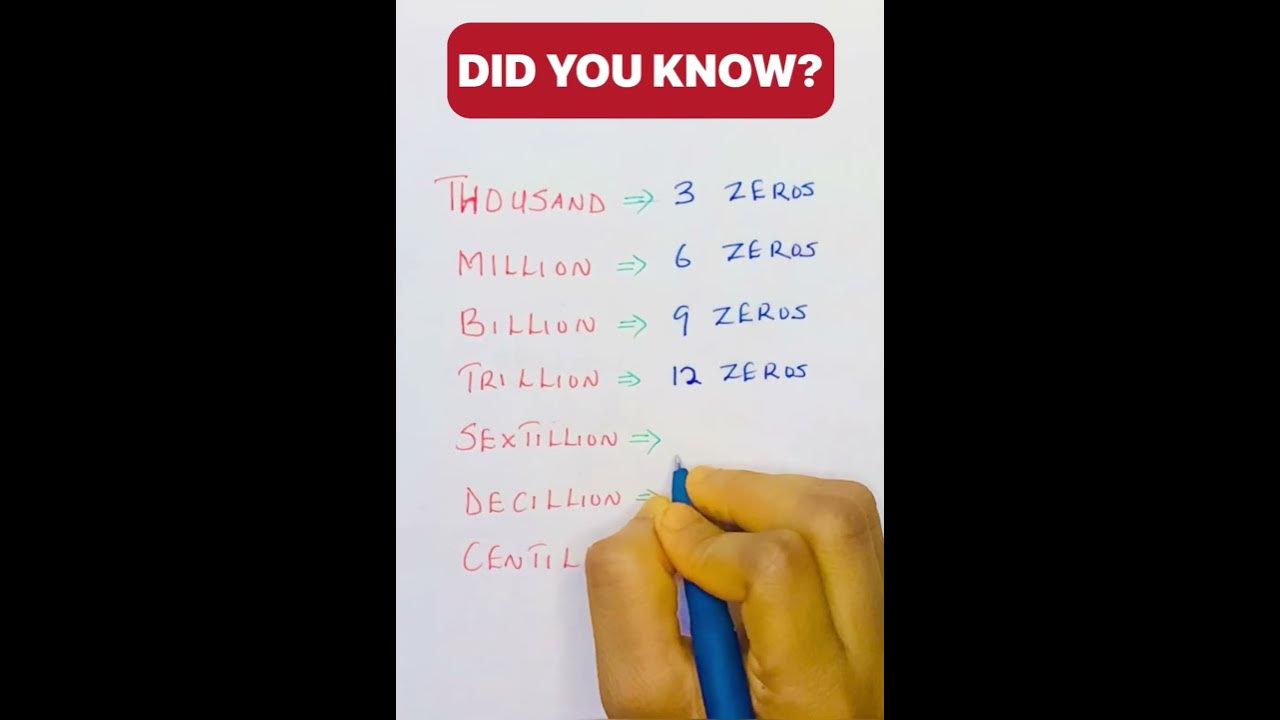 DID YOU KNOW?
THOUSAND ⇒ 3 ZEROS
MILLION ⇒ 6 ZEROS
BILLION ⇒ 9 ZEROS
TRILLION ⇒ 12 ZEROS
SEXTILLION ⇒
DECILLION ⇒
CENTIL